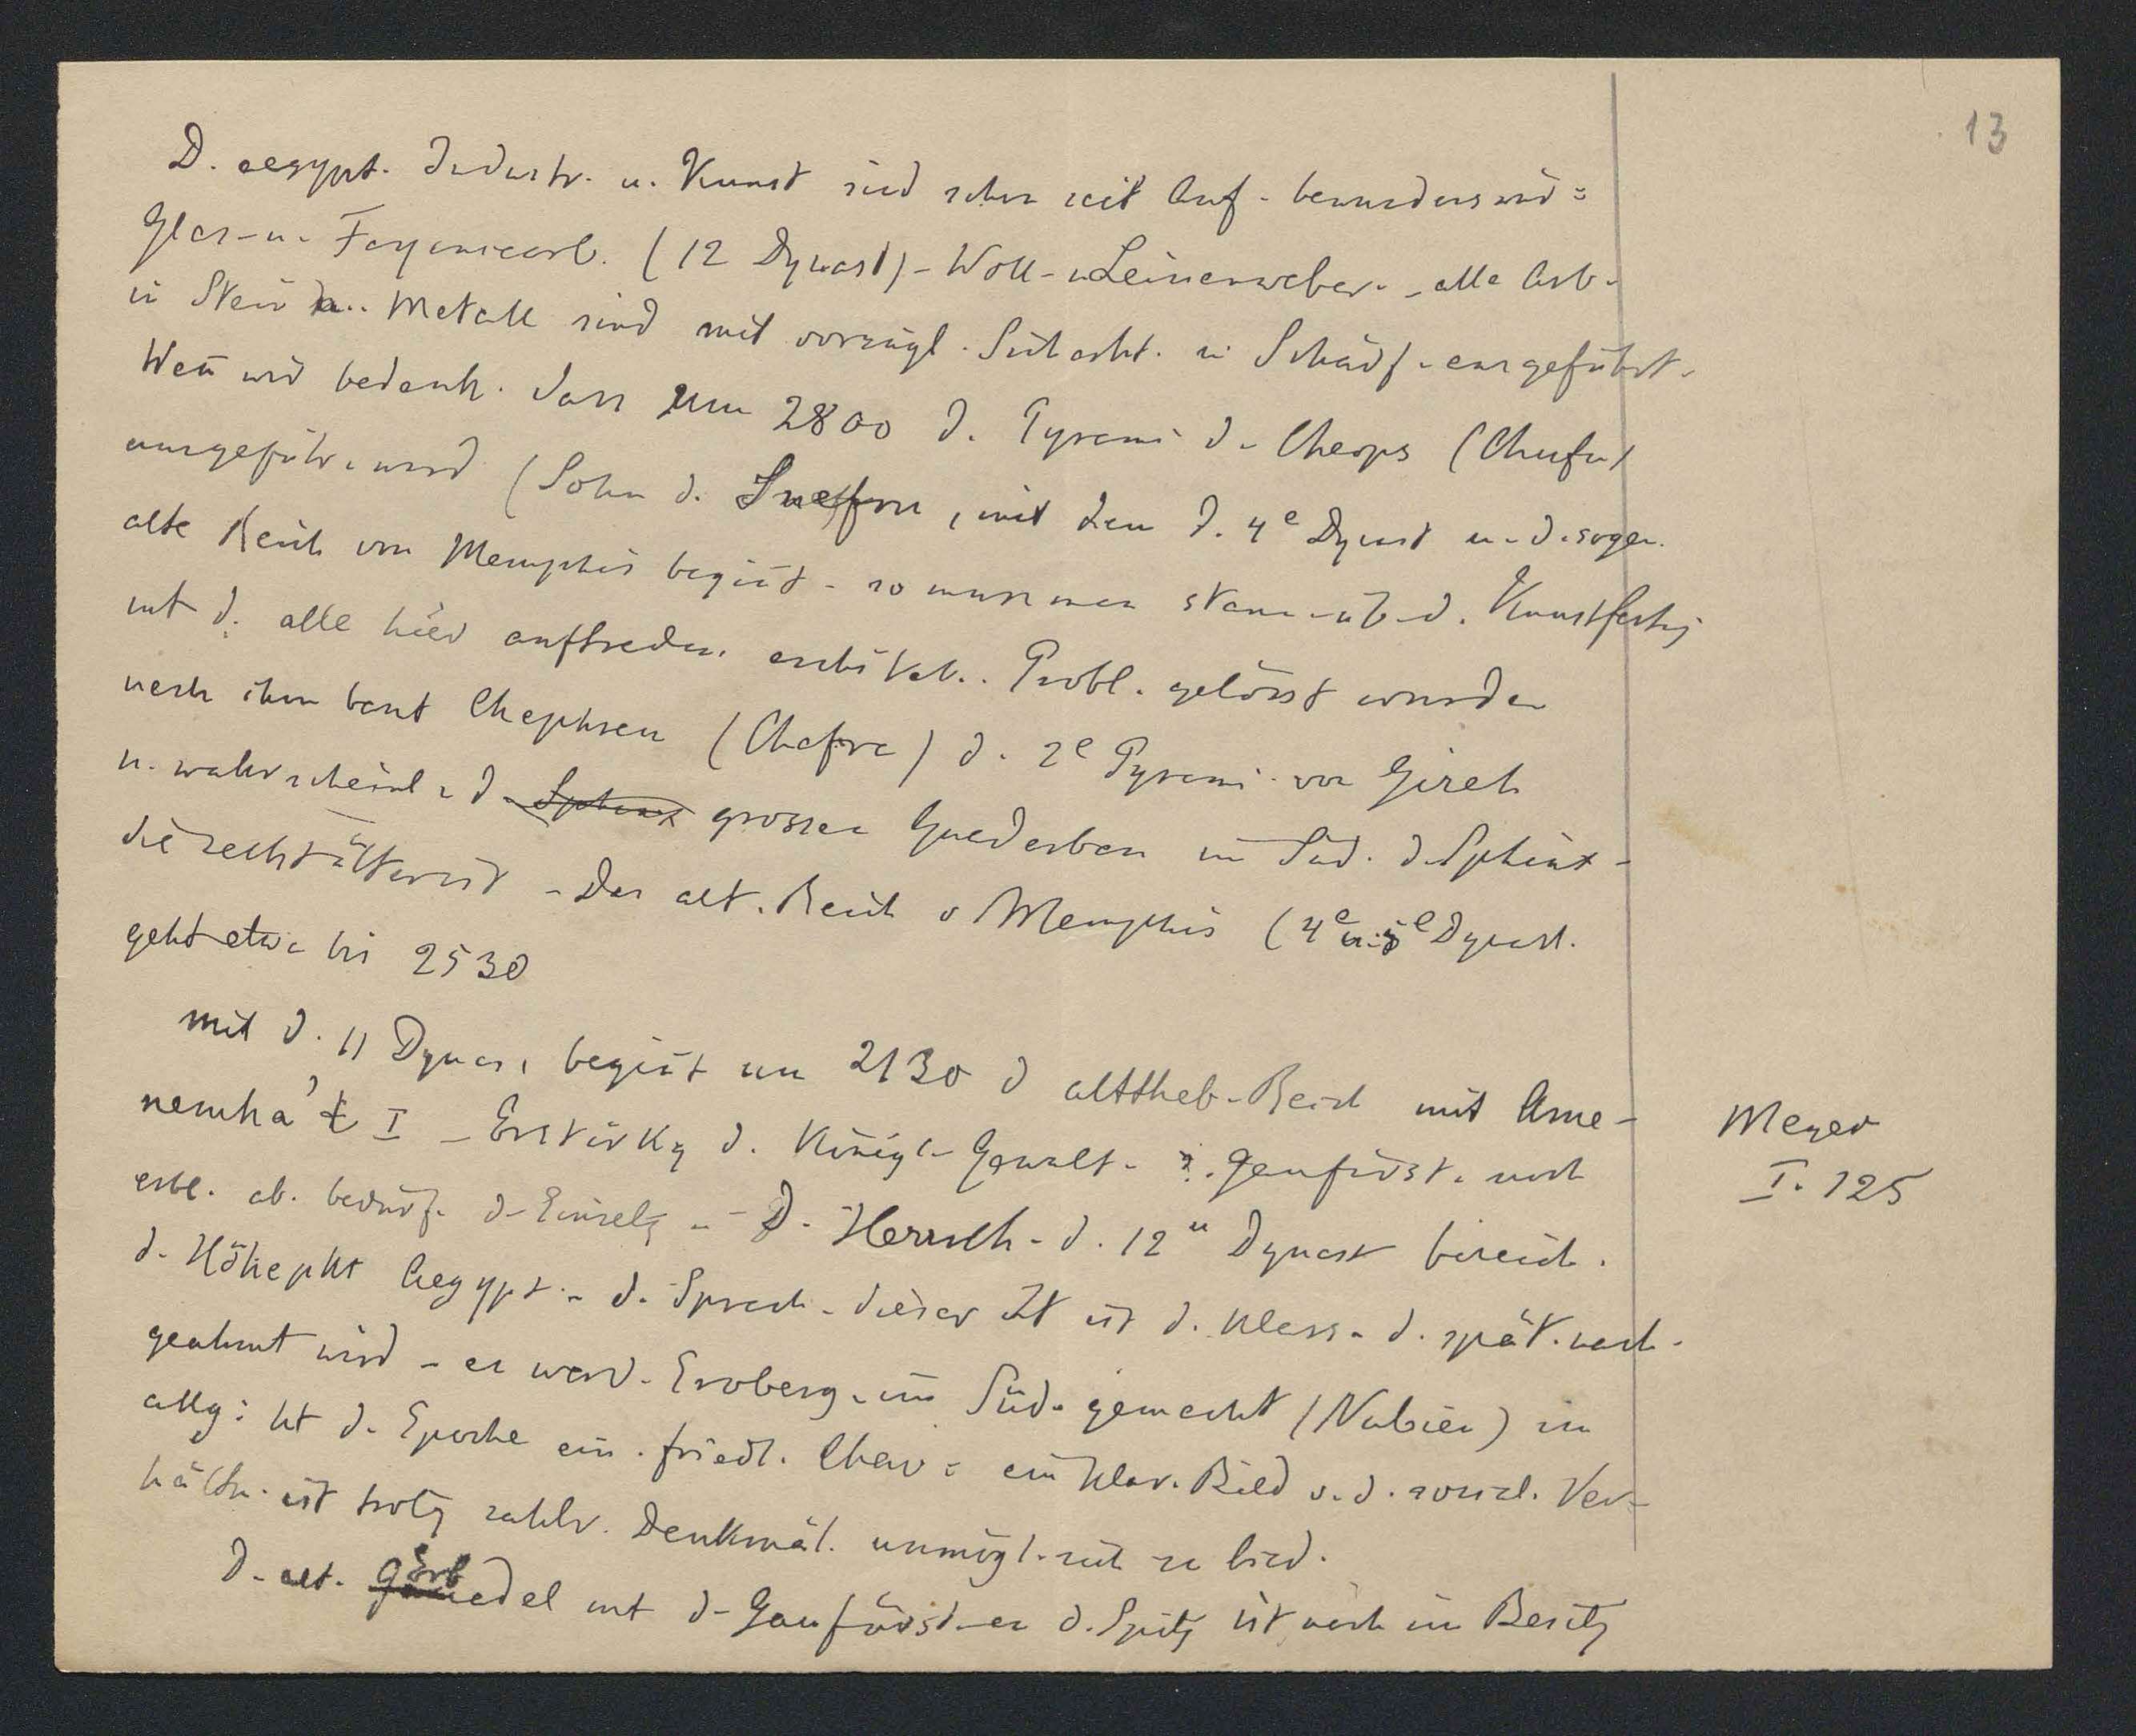 13
D. aegypt. Industr. u. Kunst sind schon seit Anf. bewundernswd:
Glas- u. Fayencearb. (12 Dynast) - Woll- u Leinenweber. - alle Arb.
in Stein u. Metall sind mit vorzügl. u. Schärf. ausgeführt.
Weñ wir bedenk. dass um 2800 d. Pyrami d. Cheops (Chufu)
ausgeführ. wird (Sohn d. Snefru, mit dem d. 4e Dynast u. d. sogen.
alte Reich von Memphis begiñt - so muss man staun. üb. d. Kunstfertig
mt d. alle hier auftreden. architekt. Probl. gelösst wurden
nach ihm baut Chephren (Chafra) d. 2e Pyrami. von Gizeh
u. wahrscheinl. d. Sphinx grossen Quaderbau im Süd. d. Sphinx -
die recht älter ist - Das alt. Reich v Memphis (4e u. 5e Dynast.
geht etwa bis 2530
mit d. 11 Dynas, begiñt um 2130 d alttheb. Reich mit Ame-
nemha't I - Erstärkg d. Königl. Gewalt - Gaufürst. noch
erbl. ab. bedürf. d. Einsetzg - D. Herrsch. d. 12n Dynast bezeich.
d. Höhepkt Aegypt. - d. Sprach. dieser Zt ist d. klass. d. spät. nach-
geahmt wird - es werd. Eroberg. im Süd. gemacht (Nubien) im
allg: ht d. Epoche ein. friedl. Char: ein klar. Bild v. d. social. Ver-
hältn. ist trotz zahlr. Denkmäl. unmögl. sich zu bild.
D. alt. Gauedel Erb mt d. Gaufürst. an d. Spitz ist noch im Besitz
Meyer
I. 125